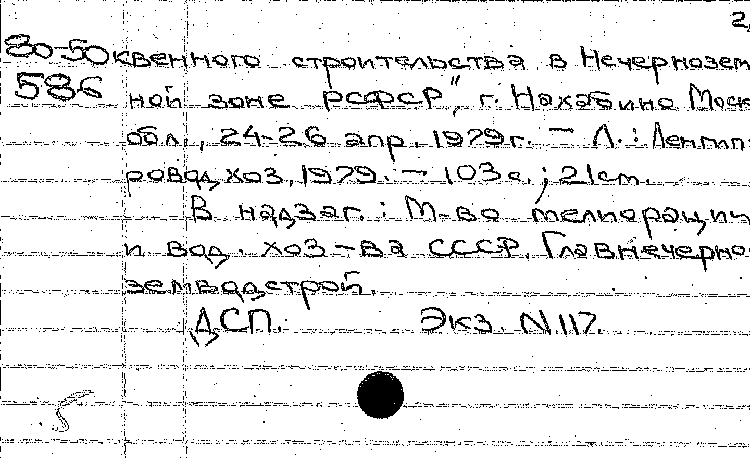 2
80-50 квенного строительства в Нечернозем
586 ной зоне РСФСР", г. Нахабино Моск
обл., 24-26 апр. 1979г. — Л.: Ленгип
роводхоз, 1979. — 103с.; 21см.
В надзаг.: М-во мелиорации
и вод. хоз-ва СССР, Главнечерно
земводстрой.
ДСП. Экз. N.117.